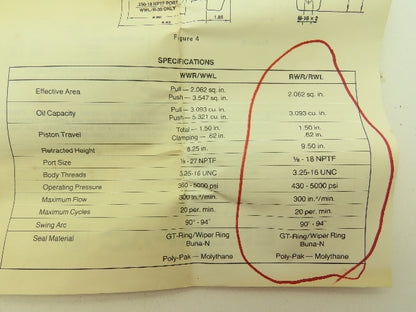 .250-18 NPTF PORT
WWL/R-35 ONLY
1.85
Figure 4
SPECIFICATIONS
WWR/WWL RWR/RWL
Effective Area Pull — 2.062 sq. in. 2.062 sq. in.
Push — 3.547 sq. in.
Oil Capacity Pull — 3.093 cu. in. 3.093 cu. in.
Push — 5.321 cu. in.
Piston Travel Total — 1.50 in. 1.50 in.
Clamping — .62 in. .62 in.
Retracted Height 8.25 in. 9.50 in.
Port Size 27 NPTF 18 NPTF
Body Threads 3.25-16 UNC 3.25-16 UNC
Operating Pressure 5000 psi 430 - 5000 psi
Maximum Flow 300 in.³/min. 300 in.³/min.
Maximum Cycles 20 per. min. 20 per. min.
Swing Arc 90° - 94° 90° - 94°
Seal Material GT-Ring/Wiper Ring GT-Ring/Wiper Ring
Buna-N Buna-N
Poly-Pak — Molythane Poly-Pak — Molythane